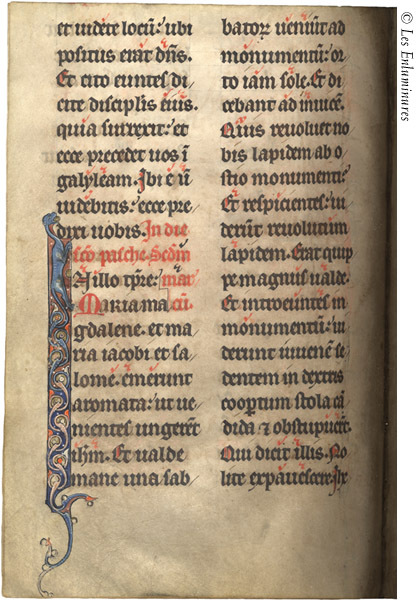 et uidete locū: ubi
positus erat dn̄s.
Et cito euntes di
cite disciplīs eius.
quia surrexit: et
ecce precedet uos ī
galyleam. Ibi eū
uidebitis: ecce pre
dixi uobis. In die
sc̄o pasche. Scdm̄
In illo tp̄re: mar
Maria ma cū.
gdalene. et ma
ria iacobi et sa
lome: emerunt
aromata: ut ue
nientes ungerēt
ih̄m. Et ualde
mane una sab
batoꝝ ueniūt ad
monumentū: or
to iam sole. Et di
cebant ad inuicē.
Quis reuoluet no
bis lapidem ab o
stio monumenti:
Et respicientes: ui
derūt reuolutum
lapidem. Erat quip
pe magnus ualde.
Et introeuntes in
monumentū: ui
derunt iuuenē se
dentem in dextris
cooꝑtum stola cā
dida & obstupuer̄t.
Qui dicit illis. No
lite expauescere. Ih̄c
© Les Enluminures